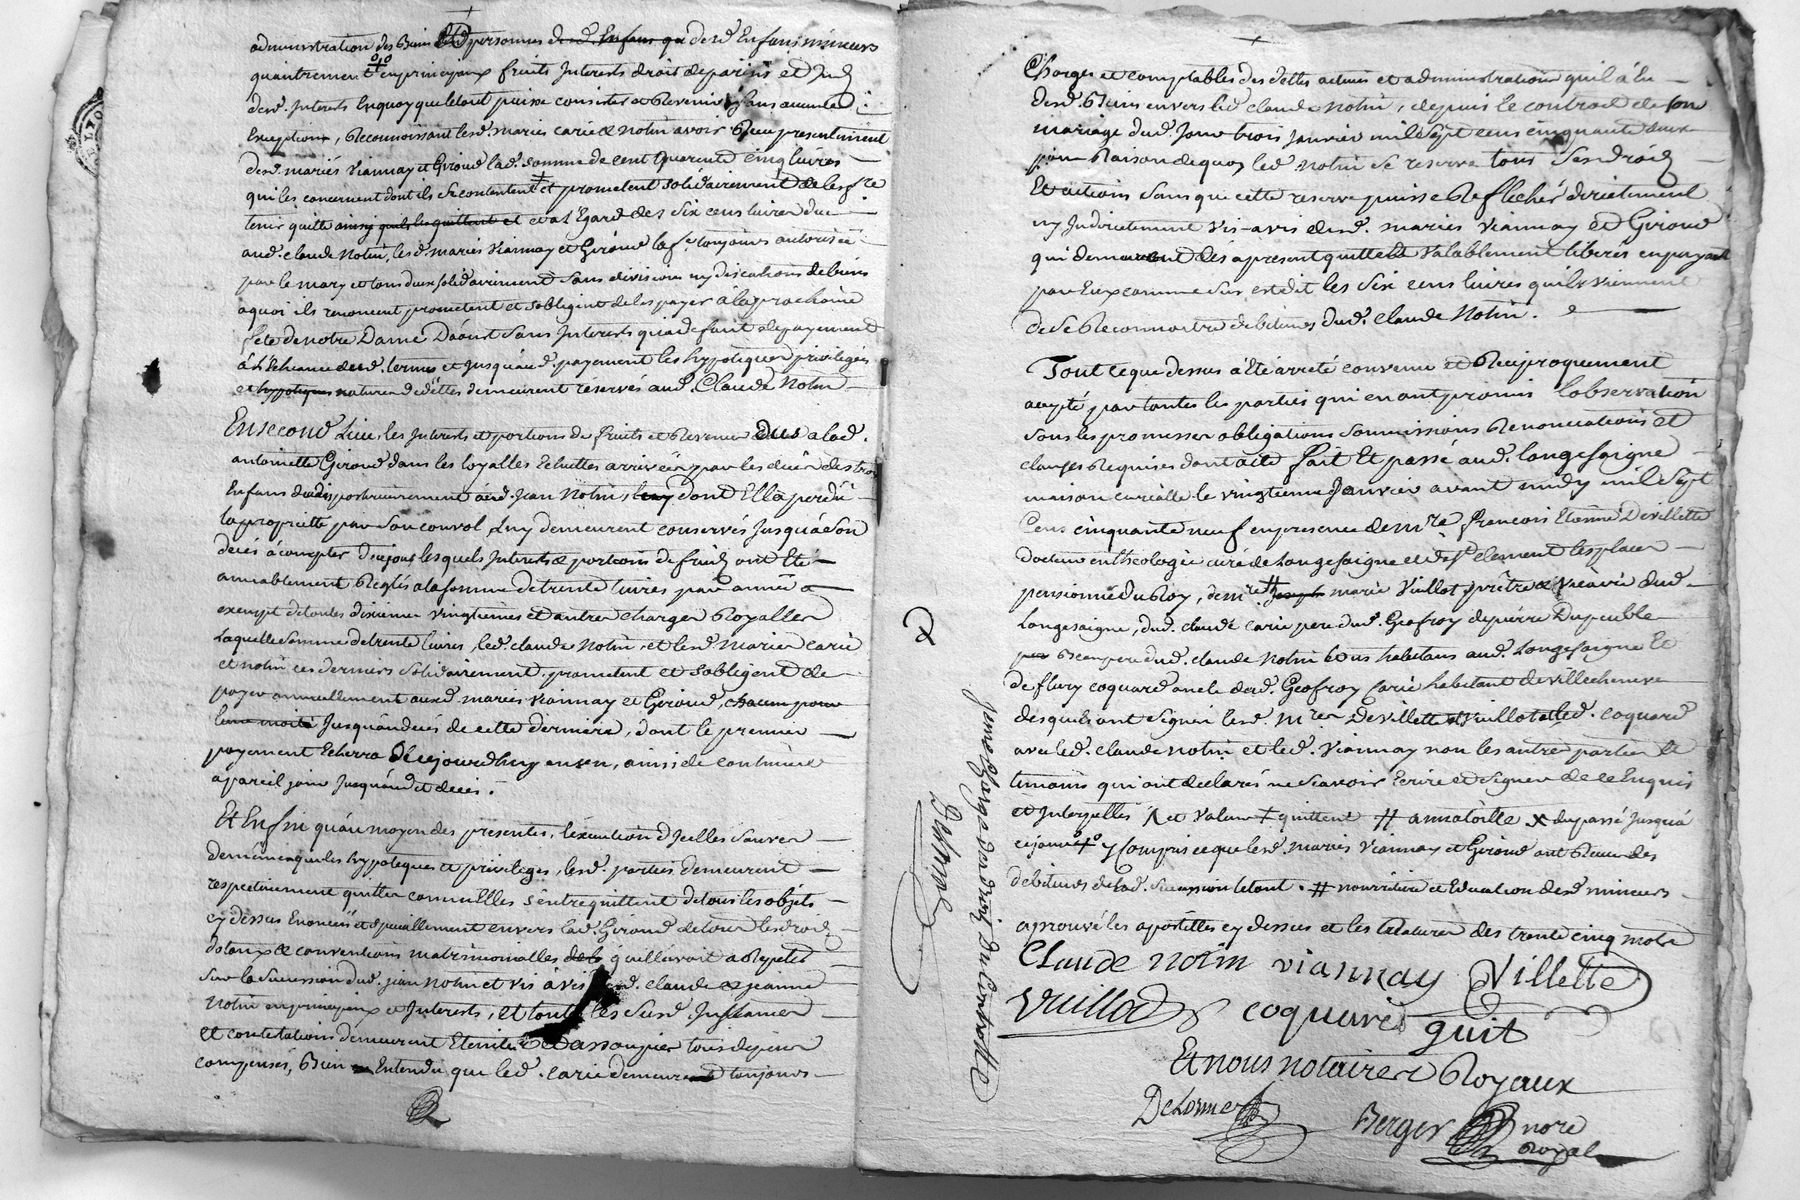 administration des Biens et personnes de sd. Enfans qu desd Enfans mineurs
quautrement en principaux fruits Interests droits deparinis et
desd. Interests Enquoy que letout puisse consister et Revenir sans aucune
Exception, Reconnoissant lesd. mariés carie & notin avoir Reçu presentement
desd. mariés viannay et Giroud lad. somme de cent quarente cinq livres
qui les concernent dont ils se contentent et prometent solidairement de les fre
tenir quitte ainsy quils les quittent et et a l'Egard des six cens livres dues
aud. claude Notin, lesd. mariés viannay et Giroud la fe toujours autorisée
par le mary et tous deux solidairement sans division ny discutions de biens
aquoi ils renoncent prometent et sobligent deles payer àla prochaine
fete de notre Dame Daoust sans Interests qua defaut de payement
à l'Echeance dud. terme et Jusquaud. payement les hypoteques privileges
et hypoteques nature de dettes demeurent reservés aud. Claude Notin
En second Lieu, les Interests et portions de fruits et Revenus dus a lad.
antoinette Giroud dans les loyalles Echuttes arrivées par les decès des trois
Enfans dudit posterieurement aud. Jean Notin, dont Ella perdu
la propriette par son convol, Luy demeurent conservés Jusqu'à son
decès à compter de ce jour lesquels Interests & portions de fruits ont Eté
amiablement Reglés ala somme de trente livres par année
exempt de toutes dixieme vingtiemes et autres charges Royalles
Laquelle somme de trente livres, led. claude Notin, et lesd. mariés carie
et notin ces derniers solidairement prometent et sobligent de
payer annuellement auxd mariés viannay et Giroud, chacun pour
leur moitié Jusqu'au decès de cette derniere, dont le premier
payement Echerra Dhuy en un an, ainsi de continuer
a pareil jour Jusquaud. decès.
Et Enfin qu'au moyen des presentes, l'exécution d'Jcelles sauves
de même que les hypoteques et privileges, lesd. parties demeurent
respectivement quittes comme Elles s'entrequittent de tous les objets
cy dessus Enoncés et specialement envers lad. Giroud de tous les droits
dotaux & conventions matrimonialles quelle avoit a Repeter
sur la succession dud. jean Notin et vis à vis desd. claude & jeanne
Notin en principaux et Interests, et toutes les susd. Instances
et contestations demeurent Eteintes et assoupies tous depens
compensés, Bien Entendu que led. carie demeure toujours
Charges et comptables des dettes actives et administration quil à Eu
desd. Biens envers led. claude Notin, depuis le contract de son
mariage dud. Jour trois Janvier mil sept cens cinquante deux
pour Raison dequoy led. notin se reserve tous ses droits
Et actions sans que cette reserve puisse Reflecher directement
ny Indirectement vis-avis desd. mariés Viannay et Giroud
qui demeurent dès apresent quittes et valablement liberés en payant
par Eux comme sus est dit les six cens livres quils viennent
de se Reconnoitre debiteurs dud. Claude Notin.
Tout ceque dessus à Eté arreté convenu et Reciproquement
accepté par toutes les parties qui en ont promis l'observation
sous les promesses obligations soumissions Renonciations et
clauses Requises dont acte fait Et passé aud. longesaigne
maison curialle le vingtieme Janvier avant midy mil sept
Cens cinquante neuf en presence de mre francois Etienne Devillette
docteur en theologie curé de Longesaigne et de St clement les places
pensionné du Roy, de mre Joseph marie Vuillot prêtre & vicaire dud.
Longesaigne, dud. claude carie pere dud. Geofroy de pierre Dupeuble
Beaupere dud. claude Notin tous habitans aud. Longesaigne Et
de fleury coquard oncle dud. Geofroy carie habitant de villecheneve
desquels ont signé lesd. mres Devillette et Vuillot et led. coquard
avec led. claude notin et led. viannay non les autres parties et
temoins qui ont declarés ne scavoir Ecrire et signer de ce Enquis
et Interpellés /. et valeur + quittent # annatoille x du passé Jusqu'à
ce jour y Compris ce que lesd. mariés Viannay et Giroud ont Recu des
debiteurs de lad. succession le tout. # nourriture et Education desd mineurs
aprouvé les apostilles cy dessus et les Ratures des trente cinq mots
Claude notin viannay Villette
Vuillot coquard
guit
Et nous notaires Royaux
Delorme Berger nore
Royal
Delorme